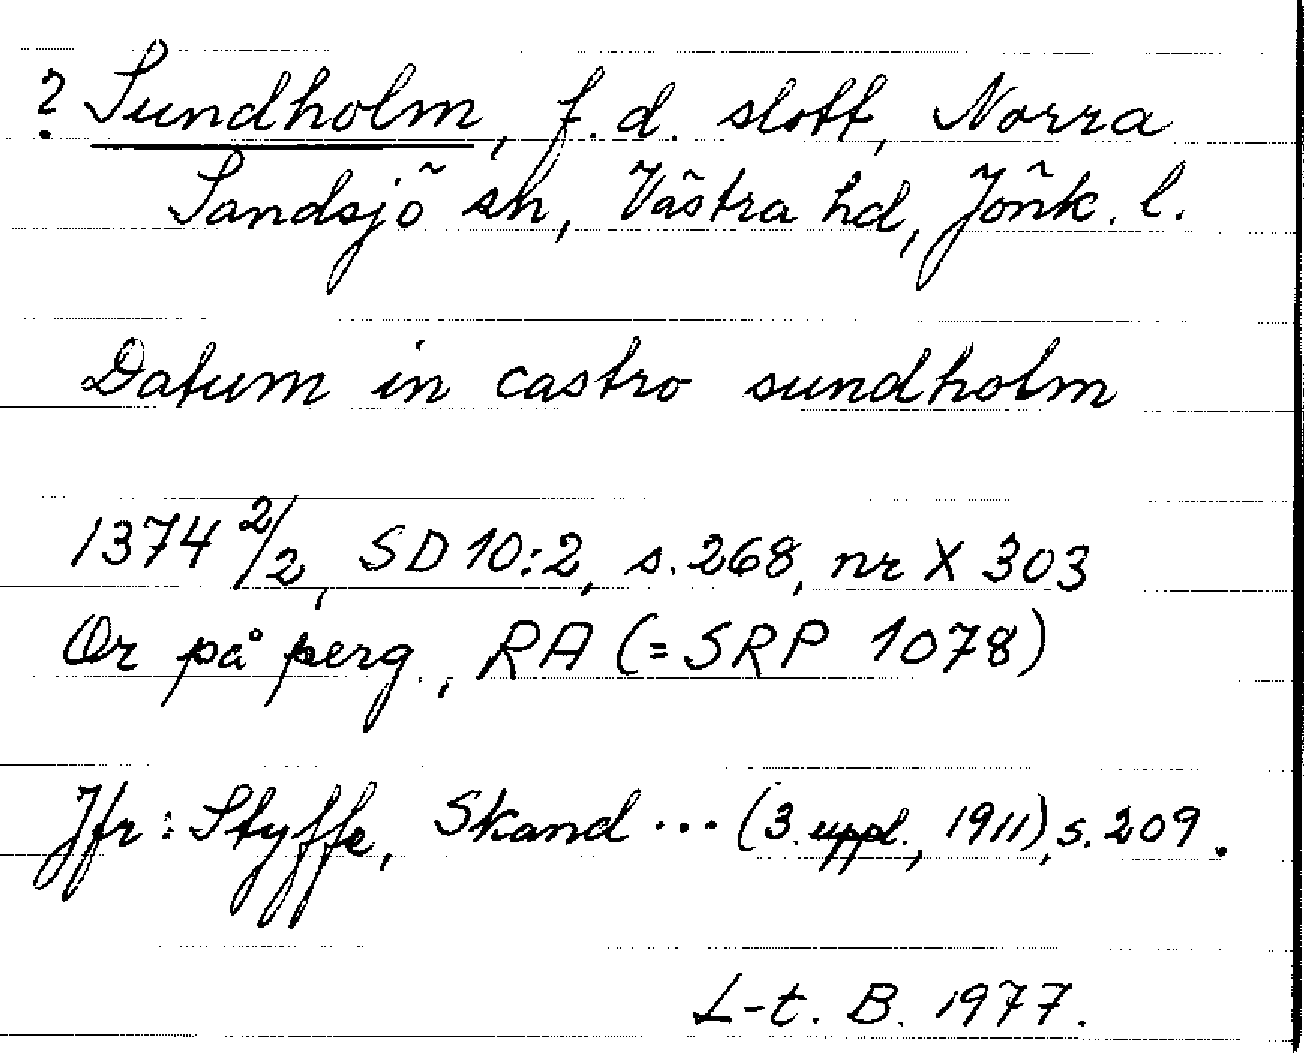 ? Sundholm, f. d. slott, Norra
Sandsjö sn, Västra hd, Jönk. l.
Datum in castro sundholm
1374 2/2, SD 10:2, s. 268, nr X 303
Or på perg., RA (= SRP 1078)
Jfr: Styffe, Skand ... (3. uppl., 1911), s. 209.
L-t. B. 1977.